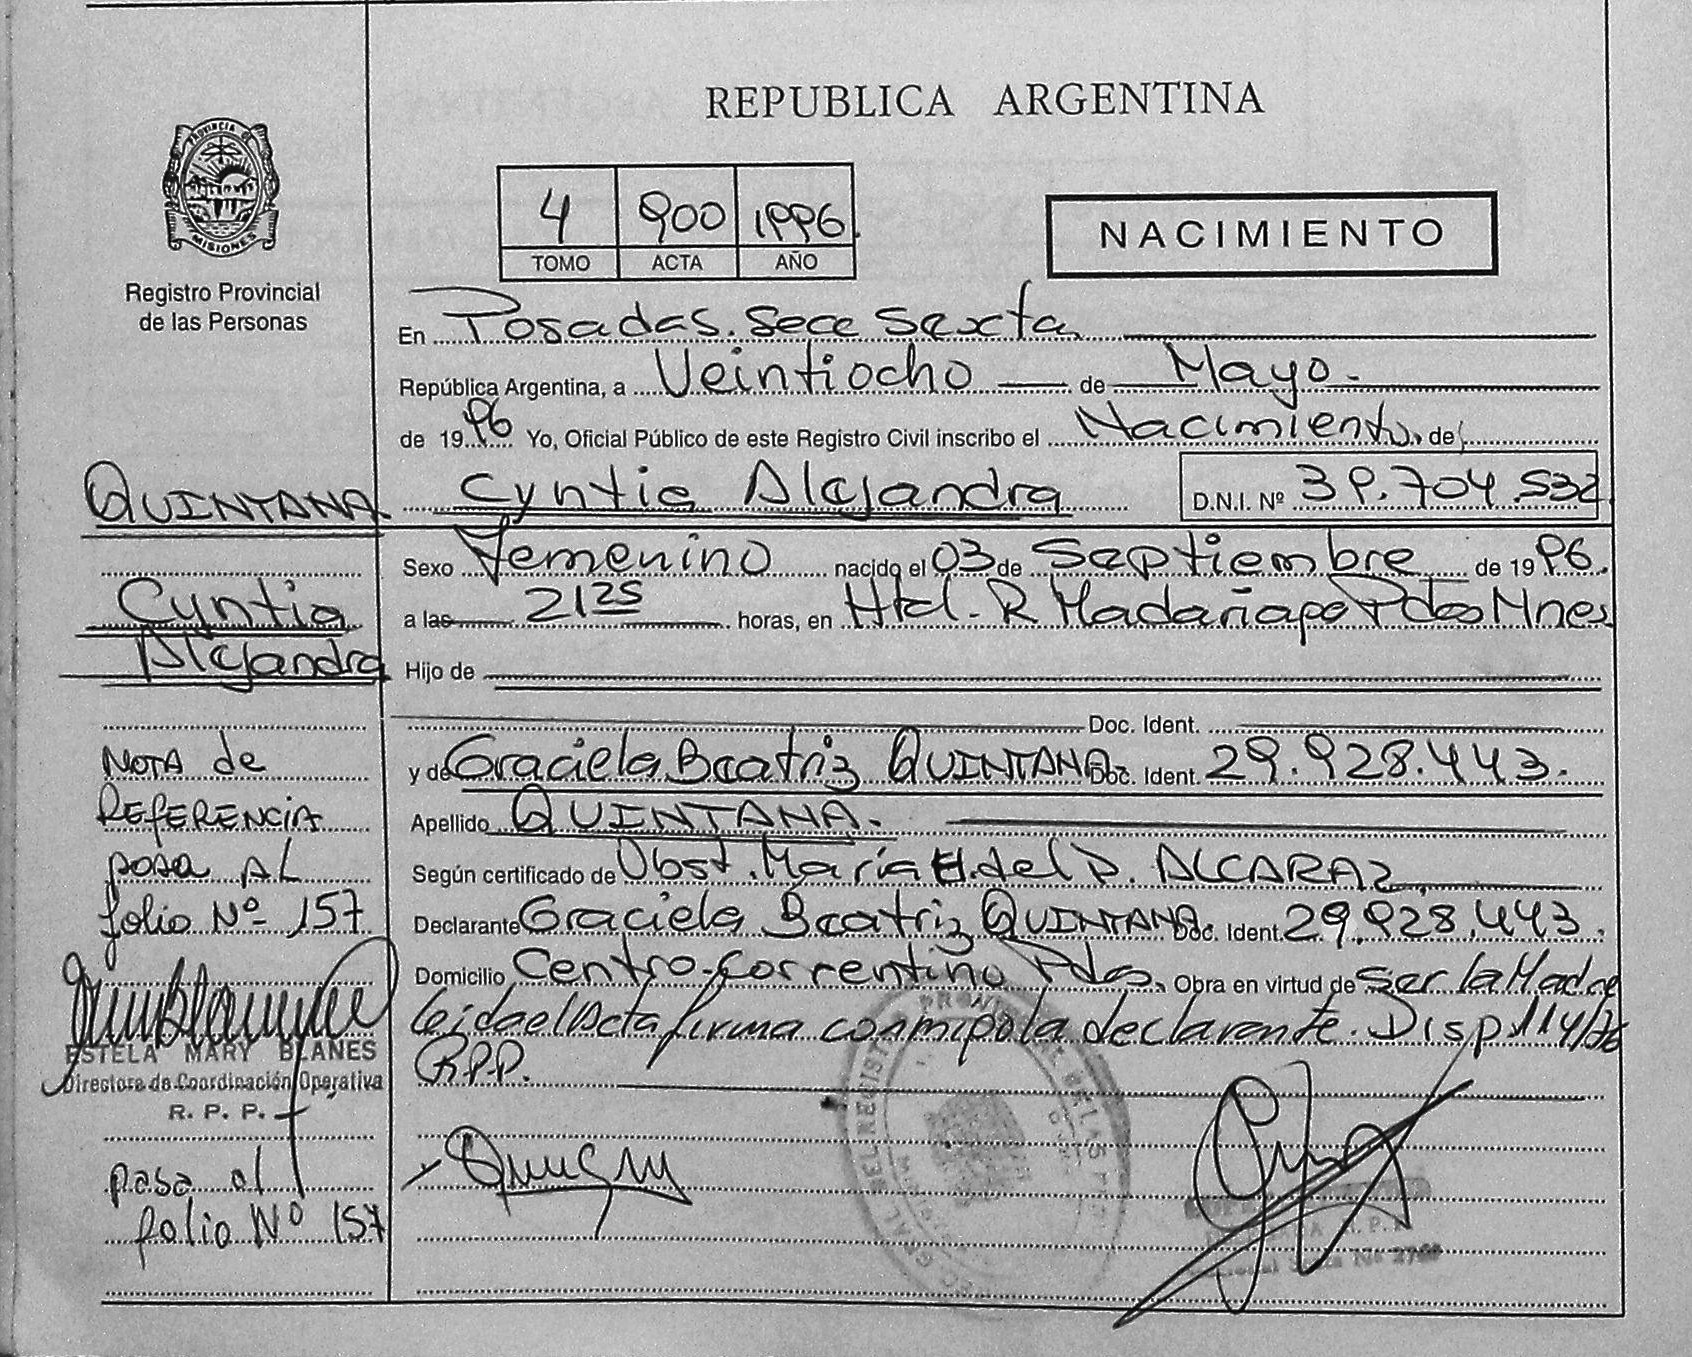 REPUBLICA ARGENTINA
PROVINCIA DE
MISIONES
Registro Provincial
de las Personas
4 900 1996
TOMO ACTA AÑO
NACIMIENTO
En Posadas. Secc Sexta
República Argentina, a Veintiocho de Mayo.
de 1996 Yo, Oficial Público de este Registro Civil inscribo el Nacimiento de
QUINTANA Cyntia Alejandra D.N.I. Nº 39.704.532
Sexo Femenino nacido el 03 de Septiembre de 1996.
Cyntia
Alejandra
a las 21 25 horas, en Htal. R Madariaga Pdas Mnes
Hijo de
Doc. Ident.
y de Graciela Beatriz QUINTANA Doc. Ident. 29.928.443.
Apellido QUINTANA.
Según certificado de Obst. María E. del P. ALCARAZ
Declarante Graciela Beatriz QUINTANA Doc. Ident. 29.928.443.
Domicilio Centro Correntino Pdas. Obra en virtud de ser la Madre
Leida el Acta firma conmigo la declarante. Disp 114/96
R.P.P.
NOTA de
REFERENCIA
pasa AL
folio Nº 157
ESTELA MARY BLANES
Directora de Coordinación Operativa
R. P. P.
pasa al
folio Nº 157